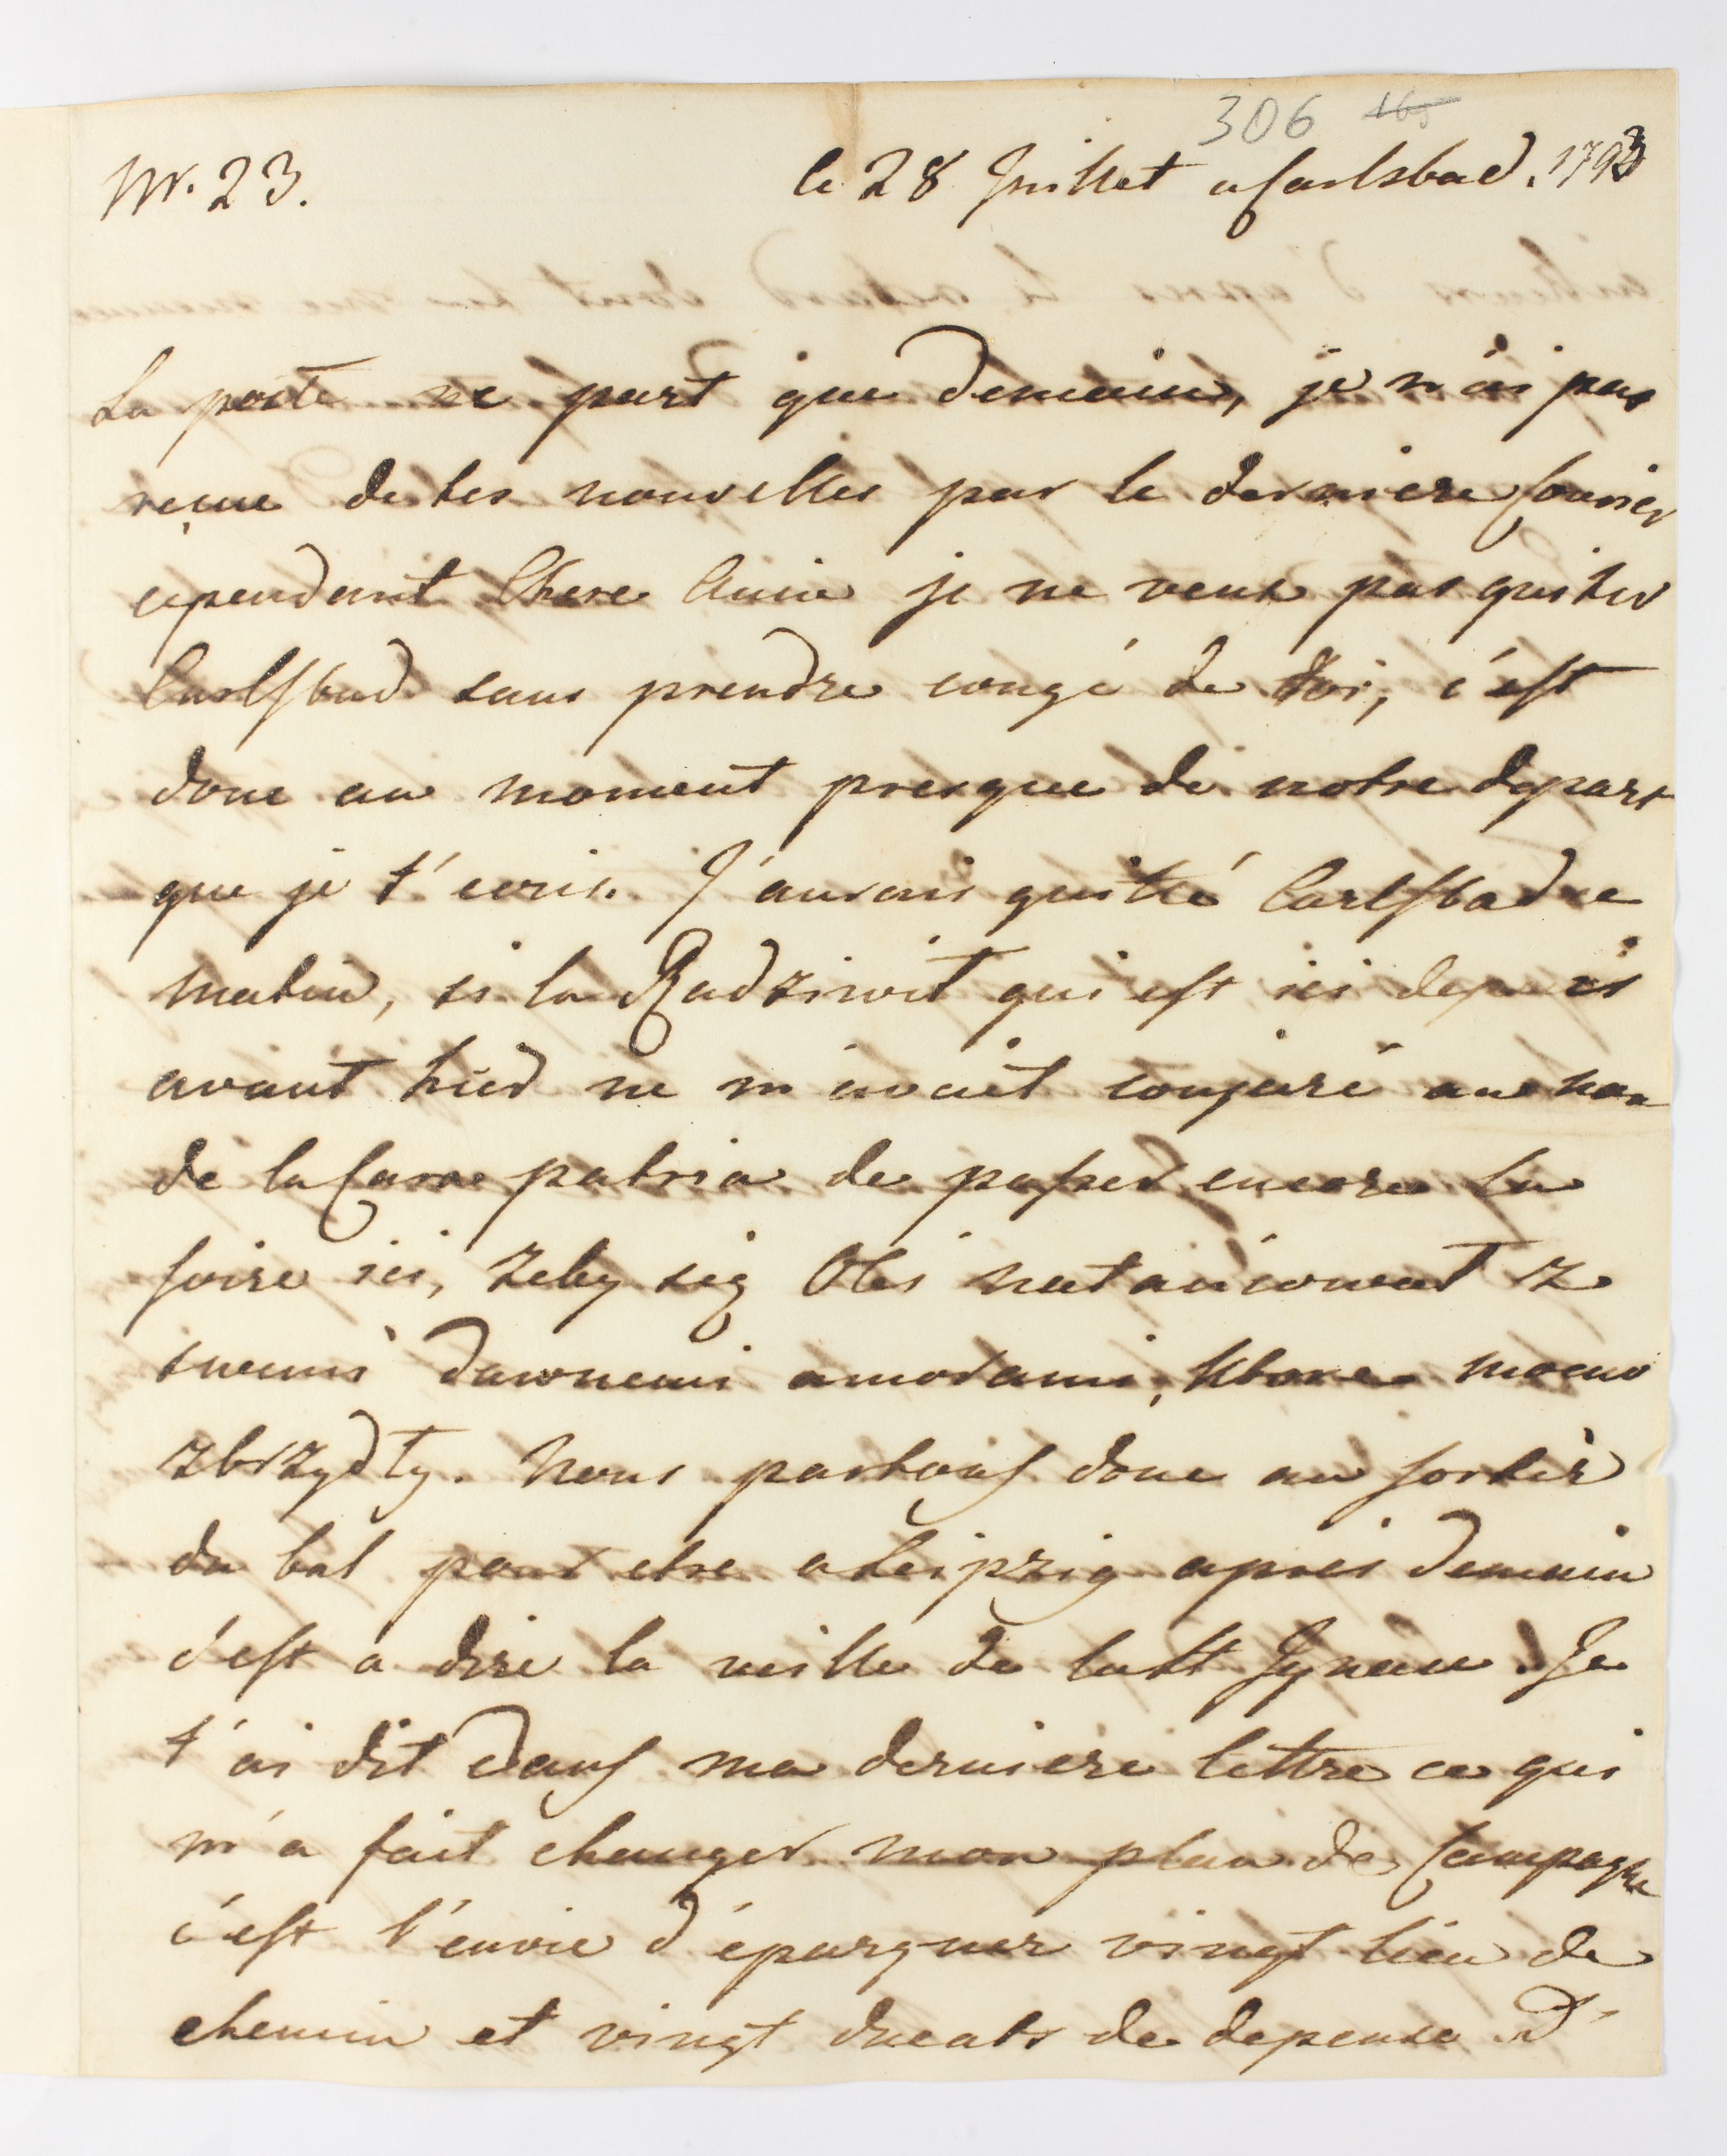 306
Nr. 23.
le 28 Juillet a Carlsbad. 1793
La poste ne part que demain, je n'ai pas
reçue de tes nouvelles par le derniere Courier
cependant Chere Amie je ne veux pas quiter
Carlsbad sans prendre congé de toi, c'est
donc au moment presque de notre depart
que je t'ecris. J'aurais quitté Carlsbad ce
matin, si la Radziwił qui est ici depuis
avant hier ne m'avait conjuré au nom
de la Cara patria de passer encore la
soire ici, zeby się Oles natańcował z
swemi dawnemi amorami, ktore mocno
zbrzydły. Nous partons donc au sortir
du bal pour etre a Leipzig apres demain
c'est a dire la veille de la St Ignace. Je
t'ai dit dans ma derniere lettre ce qui
m'a fait changer mon plan de Campagne
c'est l'envie d'épargner vingt lieu de
chemin et vingt ducats de depense. D'